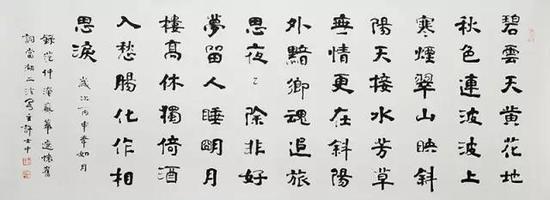 碧雲天黄花地
秋色連波波上
寒煙翠山映斜
陽天接水芳草
無情更在斜陽
外黯鄉魂追旅
思夜〻除非好
夢留人睡明月
樓高休獨倚酒
入愁腸化作相
思淚
歲次丙申年如月
錄范仲淹蘇幕遮懷舊
詞當湖主許士中